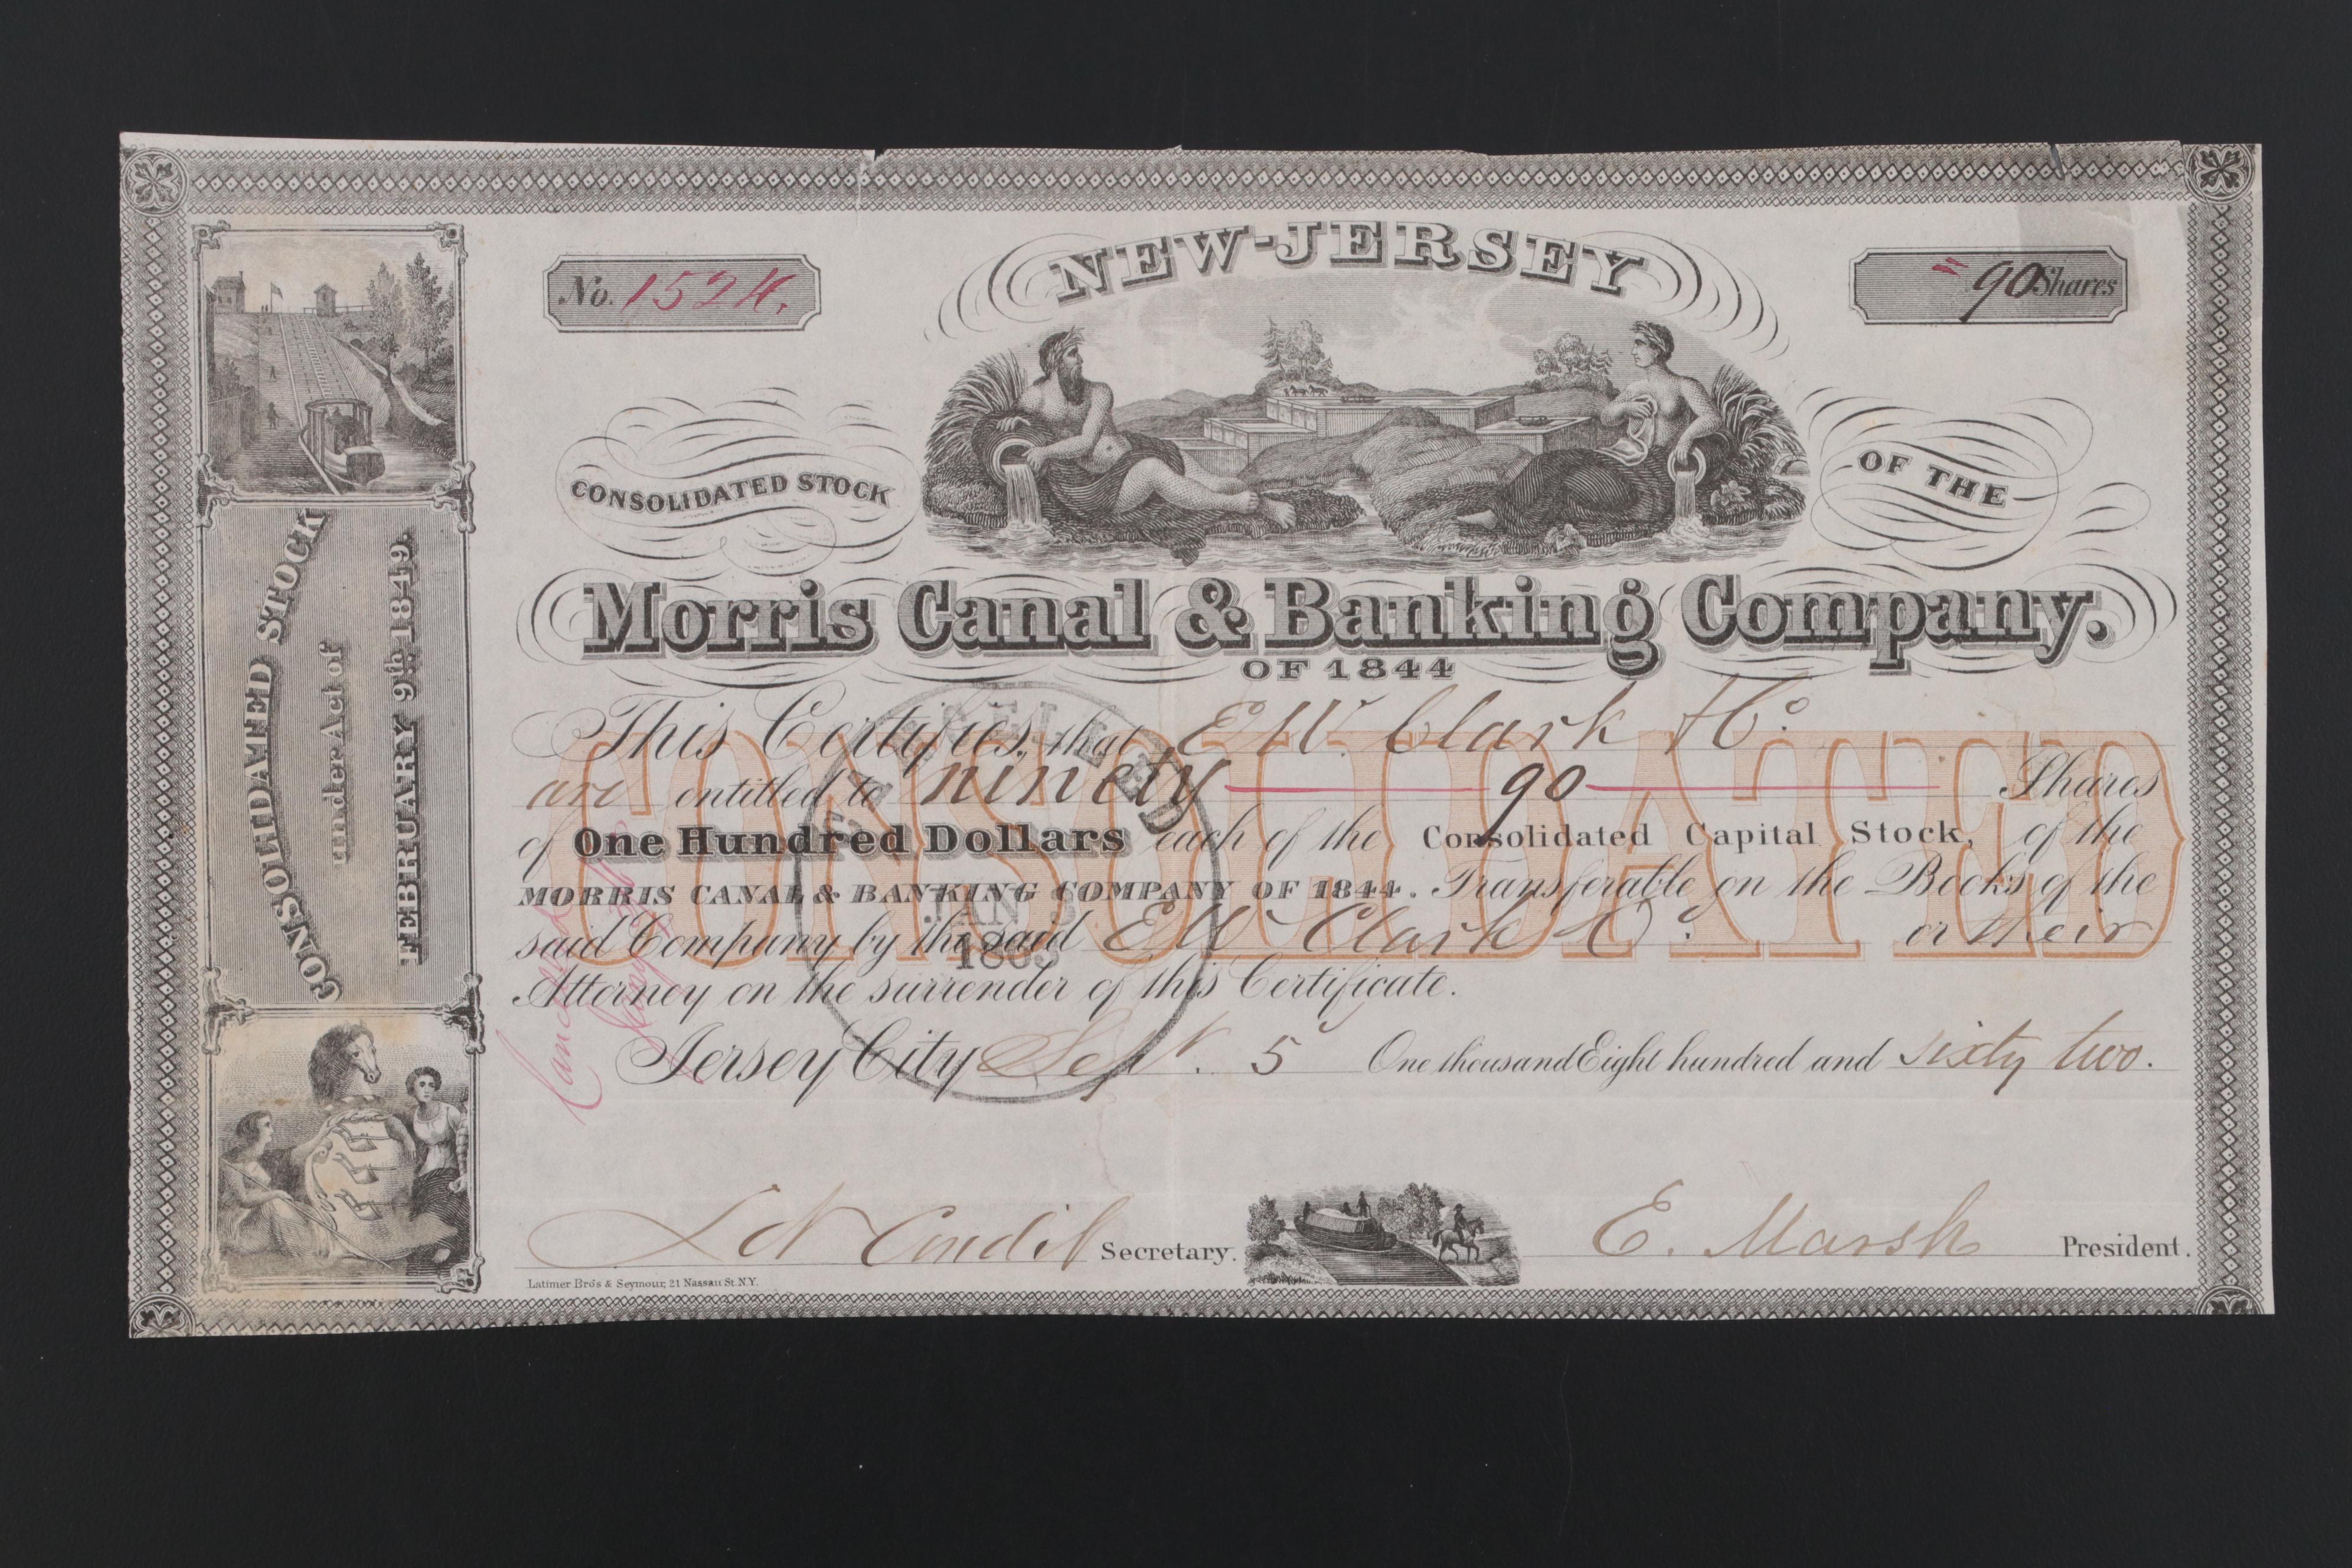 NEW-JERSEY
No. 1524.
90 Shares
CONSOLIDATED STOCK
OF THE
Morris Canal & Banking Company.
OF 1844
CONSOLIDATED STOCK
under Act of
FEBRUARY 9th 1849.
CONSOLIDATED
This Certifies, that E W. Clark & Co.
are entitled to ninety 90 Shares
of One Hundred Dollars each of the Consolidated Capital Stock, of the
MORRIS CANAL & BANKING COMPANY OF 1844. Transferable on the Books of the
said Company by the said E W Clark & Co. or their
Attorney on the surrender of this Certificate.
Jersey City Sept. 5 One thousand Eight hundred and sixty two.
CANCELLED
JAN
1863
Cancelled
Secretary.
E. Marsh President.
Latimer Bro's & Seymour, 21 Nassau St. N.Y.